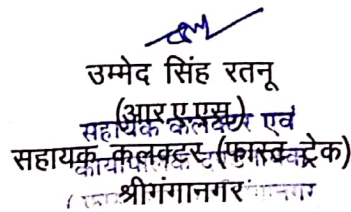 उम्मेद सिंह रतनू
(आर.ए.एस.)
सहायक कलक्टर एवं
सहायक कलक्टर (फास्ट ट्रेक)
श्रीगंगानगर